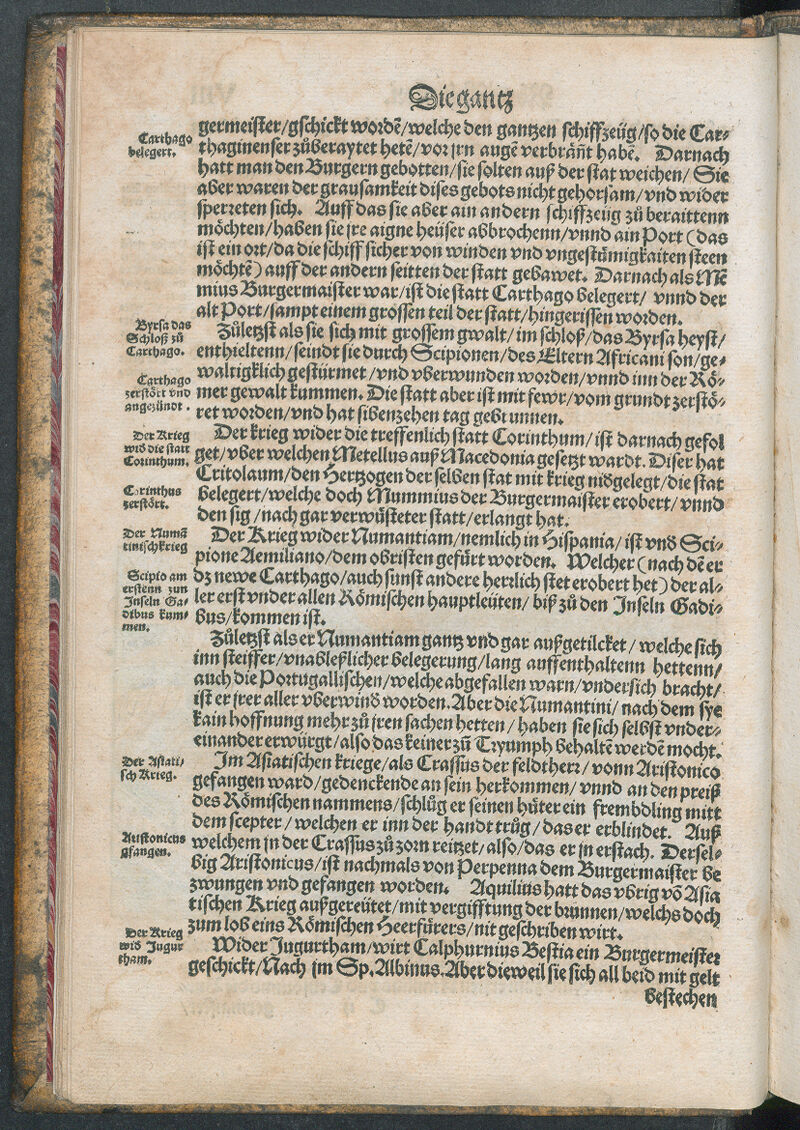 Die gantz
germeister/gschickt wordẽ/welche den gantzen schiffzeüg/so die Car-
Carthago belegert.
thaginenser zůberaytet hetẽ/vor jrn augẽ verbrãñt habẽ. Darnach
hatt man den Burgern gebotten/sie solten auß der stat weichen/ Sie
aber waren der grausamkeit dises gebots nicht gehorsam/vnd wider
sperreten sich. Auff das sie aber ain andern schiffzeüg zů beraittenn
möchten/haben sie jre aigne heüser abbrochenn/vnnd ain Port (das
ist ein ort/da die schiff sicher von winden vnd vngestümigkaiten steen
möchtẽ) auff der andern seitten der statt gebawet. Darnach als Mẽ
mius Burgermaister war/ist die statt Carthago belegert/ vnnd der
alt Port/sampt einem grossen teil der statt/hingerissen worden.
Byrsa das
Schloß zů
Carthago.
Zůletzst als sie sich mit grossem gwalt/im schloß/das Byrsa heyst/
enthieltenn/seindt sie durch Scipionen/des Eltern Africani son/ge-
waltigklich gestürmet/vnd vberwunden worden/vnnd inn der Rö-
Carthago
zerstört vnd
angezündt.
mer gewalt kummen. Die statt aber ist mit fewr/vom grundt zerstö-
ret worden/vnd hat sibenzehen tag gebrunnen.
Der Krieg
wid die statt
Corinthum.
Der krieg wider die treffenlich statt Corinthum/ist darnach gefol
get/vber welchen Metellus auß Macedonia gesetzt wardt. Diser hat
Critolaum/den Hertzogen der selben stat mit krieg nidgelegt/die stat
Corinthus
zerstört.
belegert/welche doch Mummius der Burgermaister erobert/vnnd
den sig/nach gar verwüsteter statt/erlangt hat.
Der Numã
tinischkrieg
Der Krieg wider Numantiam/nemlich in Hispania/ist vnd Sci-
pione Aemiliano/dem obristen gefürt worden. Welcher (nach dẽ er
Scipio am
erstenn zun
Inseln Ga-
dibus kum-
men.
dz newe Carthago/auch sunst andere herrlich stet erobert het) der al-
ler erst vnder allen Römischen hauptleüten/ biß zů den Inseln Gadi-
bus/kommen ist.
Zůletzst als er Numantiam gantz vnd gar außgetilcket/ welche sich
inn steiffer/vnableßlicher belegerung/lang auffenthaltenn hettenn/
auch die Portugallischen/welche abgefallen warn/vndersich bracht/
ist er jrer aller vberwind worden. Aber die Numantini/nach dem sye
kain hoffnung mehr zů jren sachen hetten/ haben sie sich selbst vnder-
einander erwürgt/also das keiner zů Tryumph behaltẽ werdẽ mocht.
Der Asiati/
sch Krieg.
Im Asiatischen kriege/als Crassus der feldtherr/vonn Aristonico
gefangen ward/gedenckende an sein herkommen/vnnd an den preiß
des Römischen nammens/schlůg er seinen hüter ein frembdling mitt
dem scepter/welchen er inn der handt trůg/das er erblindet. Auß
Aristonicus
gfangen.
welchem jn der Crassus zů zorn reitzet/also/das er jn erstach. Dersel-
big Aristonicus/ist nachmals von Perpenna dem Burgermaister be
zwungen vnd gefangen worden. Aquilius hatt das vbrig võ Asia
tischen Krieg außgereütet/mit vergifftung der brunnen/welchs doch
zum lob eins Römischen Heerfürers/nit geschriben wirt.
Der Krieg
wid Jugur
tham.
Wider Jugurtham/wirt Calphurnius Bestia ein Burgermeister
geschickt/Nach jm Sp. Albinus. Aber dieweil sie sich all beid mit gelt
bestechen